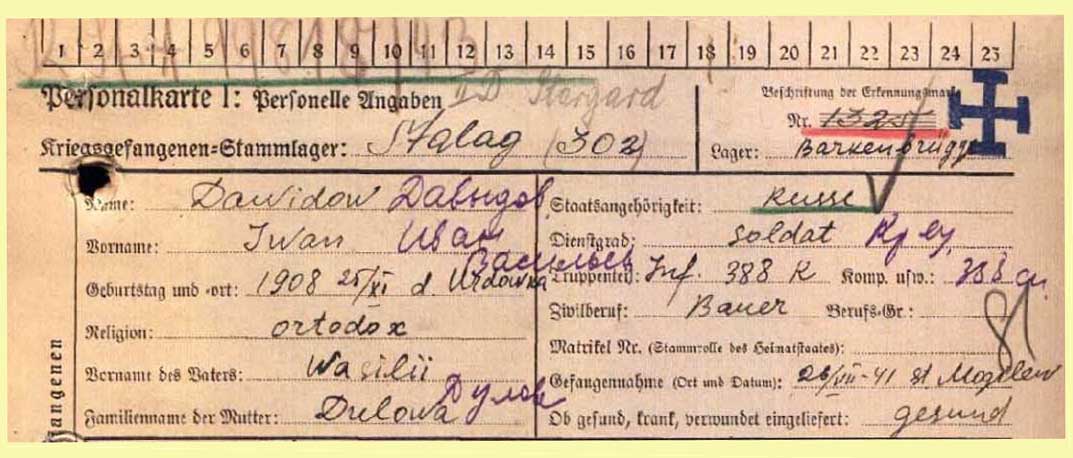 1 2 3 4 5 6 7 8 9 10 11 12 13 14 15 16 17 18 19 20 21 22 23 24 25
Personalkarte I: Personelle Angaben II D Stargard
Beschriftung der Erkennungsmarke
Nr. 1325
Kriegsgefangenen-Stammlager: Stalag (302)
Lager: Barkenbrügge
Name: Dawidow Давыдов
Vorname: Iwan Иван
Васильев
Geburtstag und -ort: 1908 25/XI d.
Religion: ortodox
Vorname des Vaters: Wasilii
Familienname der Mutter: Dulowa Дулов
Staatsangehörigkeit: Russe
Dienstgrad: Soldat
Truppenteil: Inf. 388 R Komp. usw.: 388
Zivilberuf: Bauer Berufs-Gr.:
Matrikel Nr. (Stammrolle des Heimatstaates):
Gefangennahme (Ort und Datum): 26/VII-41 st Mogilew
Ob gesund, krank, verwundet eingeliefert: gesund
angenen